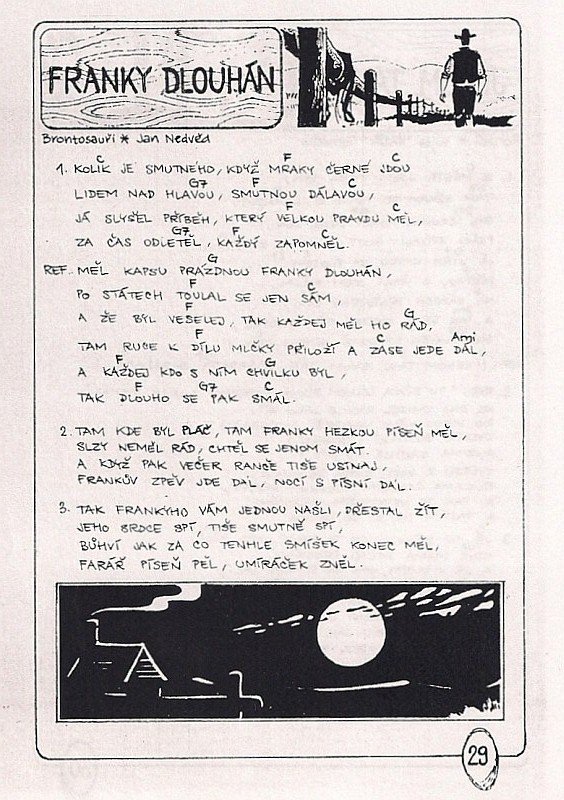 FRANKY DLOUHÁN
Brontosauři * Jan Nedvěd
C F C
1. KOLIK JE SMUTNÉHO, KDYŽ MRAKY ČERNÉ JDOU
G7 F C
LIDEM NAD HLAVOU, SMUTNOU DÁLAVOU,
F C
JÁ SLYŠEL PŘÍBĚH, KTERÝ VELKOU PRAVDU MĚL,
G7 F C
ZA ČAS ODLETĚL, KAŽDÝ ZAPOMNĚL.
G
REF. MĚL KAPSU PRÁZDNOU FRANKY DLOUHÁN,
F C
PO STÁTECH TOULAL SE JEN SÁM,
F G
A ŽE BYL VESELEJ, TAK KAŽDEJ MĚL HO RÁD,
F C Ami
TAM RUCE K DÍLU MLČKY PŘILOŽÍ A ZASE JEDE DÁL,
F G
A KAŽDEJ KDO S NÍM CHVILKU BYL,
F G7 C
TAK DLOUHO SE PAK SMÁL.
2. TAM KDE BYL PLÁČ, TAM FRANKY HEZKOU PÍSEŇ MĚL,
SLZY NEMĚL RÁD, CHTĚL SE JENOM SMÁT.
A KDYŽ PAK VEČER RANČE TIŠE USÍNAJ,
FRANKŮV ZPĚV JDE DÁL, NOCÍ S PÍSNÍ DÁL.
3. TAK FRANKYHO VÁM JEDNOU NAŠLI, PŘESTAL ŽÍT,
JEHO SRDCE SPÍ, TIŠE SMUTNĚ SPÍ,
BŮHVÍ JAK ZA CO TENHLE SMÍŠEK KONEC MĚL,
FARÁŘ PÍSEŇ PĚL, UMÍRÁČEK ZNĚL.
29